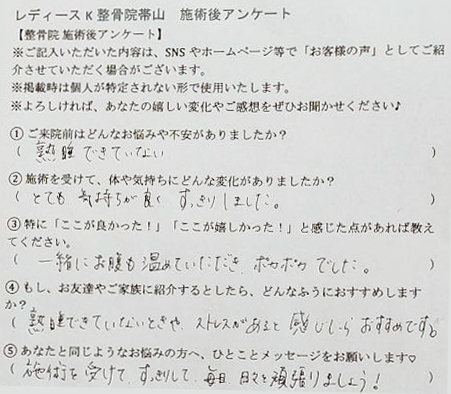 レディースK整骨院帯山 施術後アンケート
【整骨院 施術後アンケート】
※ご記入いただいた内容は、SNSやホームページ等で「お客様の声」としてご紹
介させていただく場合がございます。
※掲載時は個人が特定されない形で使用いたします。
※よろしければ、あなたの嬉しい変化やご感想をぜひお聞かせください♪
①ご来院前はどんなお悩みや不安がありましたか?
( 熟睡できていない )
②施術を受けて、体や気持ちにどんな変化がありましたか?
( とても気持ちが良く すっきりしました。 )
③特に「ここが良かった!」「ここが嬉しかった!」と感じた点があれば教え
てください。
( 一緒にお腹も温めていただき、ポカポカでした。 )
④もし、お友達やご家族に紹介するとしたら、どんなふうにおすすめします
か?
( 熟睡できていないときや、ストレスがあると感じたらおすすめです。 )
⑤あなたと同じようなお悩みの方へ、ひとことメッセージをお願いします♡
( 施術を受けて、すっきりして、毎日、日々を頑張りましょう! )